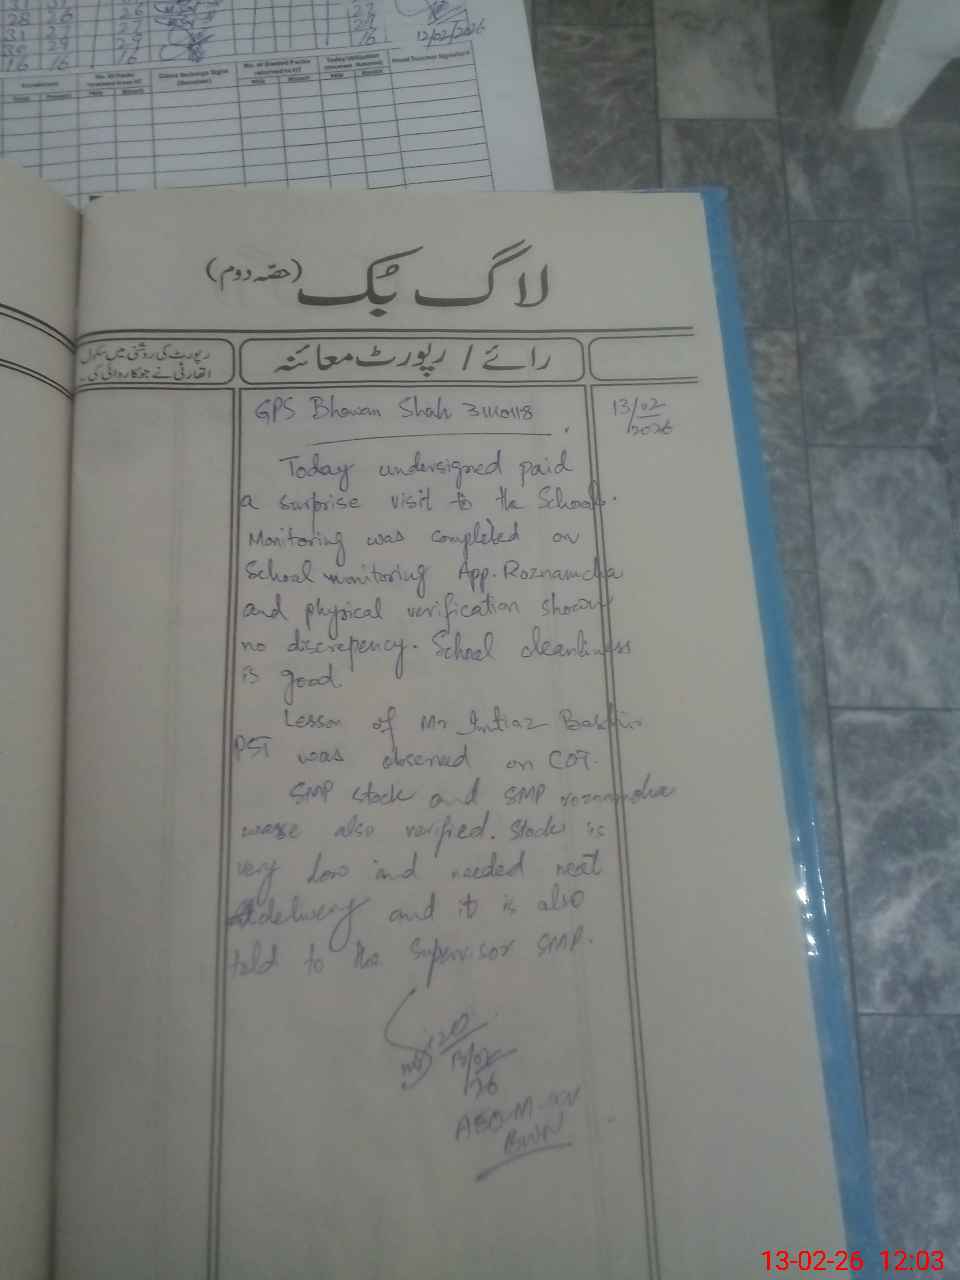 28 26
31 27
30 29 27
16 16 16 16
12/02/2026
Head Teacher Signature
لاگ بک (حصّہ دوم)
رپورٹ کی روشنی میں سکول
اتھارٹی نے جو کاروائی کی۔
رائے / رپورٹ معائنہ
GPS Bhawan Shah 31110118
13/02
2026
Today undersigned paid
a surprise visit to the School.
Monitoring was completed on
School monitoring App. Roznamcha
and physical verification shows
no discrepency. School cleanliness
is good.
Lesson of Mr Imtiaz Bashir
PST was observed on COT.
SMP stock and SMP roznamcha
were also verified. Stock is
very low and needed next
delivery and it is also
told to the Supervisor SMP.
13/02
26
BWN
13-02-26 12:03